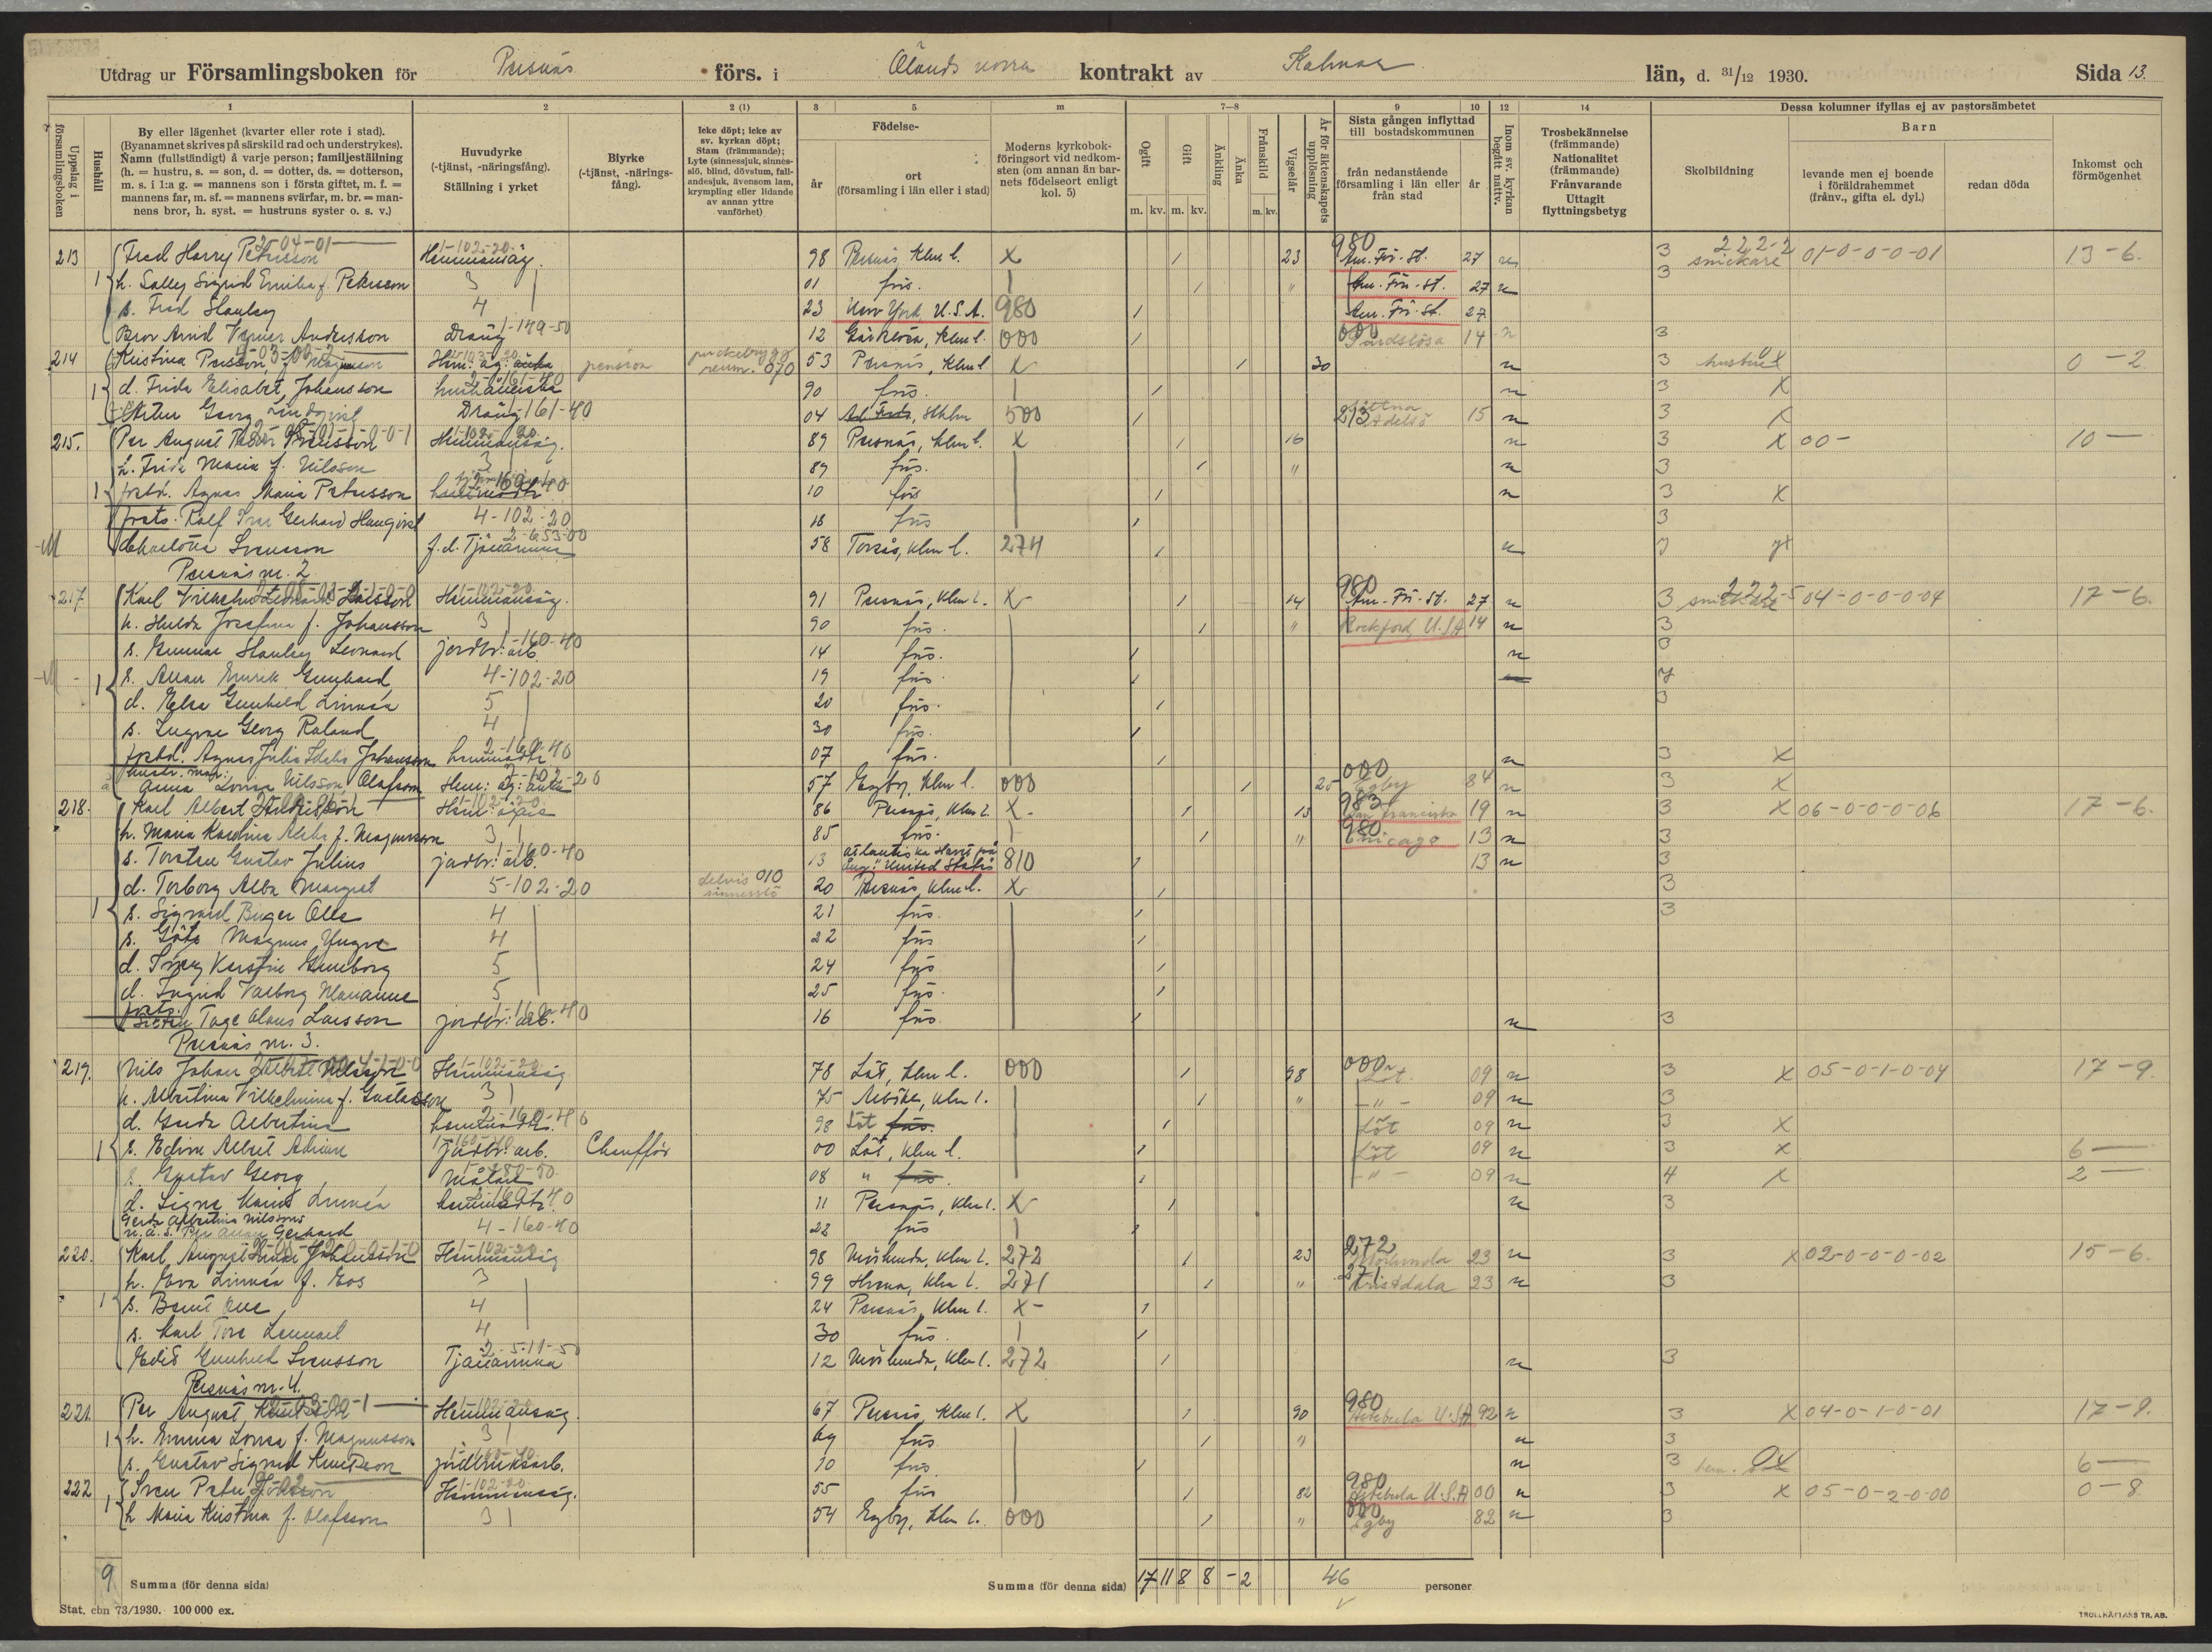 Utdrag ur Församlingsboken för Persnäs förs. i Ölands norra kontrakt av Kalmar län, d. 31/12 1930. Sida 13.
1 2 2 (1) 3 5 m 7—8 9 10 12 14 Dessa kolumner ifyllas ej av pastorsämbetet
Uppslag i församlingsboken
Hushåll
By eller lägenhet (kvarter eller rote i stad).
(Byanamnet skrives på särskild rad och understrykes).
Namn (fullständigt) å varje person; familjeställning
(h. = hustru, s. = son, d. = dotter, ds. = dotterson,
m. s. i 1:a g. = mannens son i första giftet, m. f. =
mannens far, m. sf. = mannens svärfar, m. br. = man-
nens bror, h. syst. = hustruns syster o. s. v.)
Huvudyrke
(-tjänst, -näringsfång).
Ställning i yrket
Biyrke
(-tjänst, -närings-
fång).
Icke döpt; icke av
sv. kyrkan döpt;
Stam (främmande);
Lyte (sinnessjuk, sinnes-
slö, blind, dövstum, fall-
andesjuk, ävensom lam,
krympling eller lidande
av annan yttre
vanförhet)
Födelse-
år
ort
(församling i län eller i stad)
Moderns kyrkobok-
föringsort vid nedkom-
sten (om annan än bar-
nets födelseort enligt
kol. 5)
Ogift Gift Änkling Änka Frånskild
m. kv. m. kv. m. kv.
Vigselår
År för äktenskapets upplösning
Sista gången inflyttad
till bostadskommunen
från nedanstående
församling i län eller
från stad
år
Inom sv. kyrkan begått nattv.
Trosbekännelse
(främmande)
Nationalitet
(främmande)
Frånvarande
Uttagit
flyttningsbetyg
Skolbildning
Barn
levande men ej boende
i föräldrahemmet
(frånv., gifta el. dyl.)
redan döda
Inkomst och
förmögenhet
213 Fred Harry Petersson 2-04-01 Hemmansäg. 1-102-20 98 Persnäs, Klm l. X 23 980 Am. För. St. 27 n 3 snickare 222-2 01-0-0-0-01 13-6.
1 h. Sally Sigrid Emilia f. Petersson 3 01 förs. " Am. För. St. 27 n 3
s. Fred Stanley 4 23 New York, U.S.A. 980 Am. För. St. 27
Bror Arvid Verner Andersson Dräng 1-149-50 12 Gärdslösa, Klm l. 000 000 Gärdslösa 14 n 3
214 Kristina Persson, f. Magnusson Hem. äg: änka pension 070 53 Persnäs, Klm l X 30 n 3 X 0-2.
1 d. Frida Elisabet Johansson 2-161-40 90 förs. n 3 X
Artur Georg Lindqvist Dräng 1-161-40 04 Ad. Fredr, Sthlm 500 213 Adelsö 15 n 3 X
215. Per August Petersson Hemmansäg. 1-102-20 89 Persnäs, Klm l. X 16 n 3 X 00- 10—
h. Frida Maria f. Nilsson 3 89 förs. " n 3
1 fostd. Agnes Maria Petersson 2-160-40 10 förs n 3 X
fosts. Rolf Ivar Gerhard Haugqvist 4-102-20 18 förs 3
Charlotta Svensson f.d. Tjänarinna 2-653-00 58 Torsås, Klm l. 274 n 7 gx
Persnäs nr. 2
217. Karl Vilhelm Leonard Larsson Hemmansäg. 1-102-20 91 Persnäs, Klm l. X 14 980 Am. För. St. 27 n 3 snickare 222-5 04-0-0-0-04 17-6.
h. Hulda Josefina f. Johansson 3 90 förs. " Rockford, U.S.A 14 n 3
s. Gunnar Stanley Leonard jordbr: arb. 1-160-40 14 förs. n 3
1 s. Allan Henrik Gunhard 4-102-20 19 förs. 7
d. Elsa Gunhild Linnéa 5 20 förs. 3
s. Ingvar Georg Roland 4 30 förs.
fostd. Agnes Julia Idalia Johansson hemmadtr 2-160-40 07 förs. n 3 X
Anna Lovisa Nilsson, Olofsson Hem: äg: änka 2-102-20 57 Egby, Klm l. 000 25 000 Egby 84 n 3 X
218. Karl Albert Andersson Hem: ägare 1-102-20 86 Persnäs, Klm l. X 13 983 San Francisko 19 n 3 X 06-0-0-0-06 17-6.
h. Maria Karolina Adelia f. Magnusson 3 85 förs. " 980 Chicago 13 n 3
s. Torsten Gustav Julius jordbr: arb. 1-160-40 13 atlantiska Havet på ång. "United States" 810 13 n 3
d. Torborg Alba Margret 5-102-20 delvis 010 sinnesslö 20 Persnäs, Klm l. X 3
1 s. Sigvard Birger Olle 4 21 förs. 3
s. Göte Magnus Yngve 4 22 förs
d. Inez Kerstin Gunborg 5 24 förs
d. Ingrid Valborg Marianne 5 25 förs.
fosts. Sixten Tage Claus Larsson jordbr: arb. 1-160-40 16 förs. n 3
Persnäs nr. 3.
219. Nils Johan Albert Nilsson Hemmansäg 1-102-20 78 Löt, Klm l. 000 98 000 Löt. 09 n 3 X 05-0-1-0-04 17-9.
h. Albertina Vilhelmina f. Gustafsson 3 75 Alböke, Klm l. " -"- 09 n 3
d. Gerda Albertina hemmadtr. 2-160-40 98 Löt förs. Löt 09 n 3 X
1 s. Edvin Albert Adrian jordbr: arb. 1-160-40 Chaufför 00 Löt, Klm l. Löt 09 n 3 X 6—
s. Gustav Georg Målare 08 " förs -"- 09 n 4 X 2—
d. Signe Maria Linnéa hemmadtr 2-160-40 11 Persnäs, Klm l. X n 3
Gerda Albertina Nilssons
u. ä. s. Per Allan Gerhard 4-160-40 22 förs
220. Karl August Hemmansäg 1-102-20 98 Mörlunda, Klm l. 272 23 272 Mörlunda 23 n 3 X 02-0-0-0-02 15-6.
h. Eva Linnéa f. Eos 3 99 Hvena, Klm l. 271 " 271 Kristdala 23 n 3
1 s. Bernt Ove 4 24 Persnäs, Klm l. X-
s. Karl Tore Lennart 4 30 förs.
Edit Gunhild Svensson Tjänarinna 2-511-50 12 Mörlunda, Klm l. 272 n 3
Persnäs nr. 4.
221. Per August Knutsson Hemmansäg. 1-102-20 67 Persnäs, Klm l. X 90 980 Astebula U.S.A 92 n 3 X 04-0-1-0-01 17-9.
1 h. Emma Lovisa f. Magnusson 3 69 förs " n 3
s. Gustav Sigvard Knutsson jordbruksarb. 1-160-40 10 förs n 3 6—
222 Sven Peter Hemmansäg. 1-102-20 55 förs 82 980 Astebula U.S.A 00 n 3 X 05-0-2-0-00 0-8
1 h Maria Kristina f. Olofsson 3 54 Egby, Klm l. 000 " 000 Egby 82 n 3
9 Summa (för denna sida) Summa (för denna sida) 17 11 8 8 - 2 46 personer
Stat. cbn 73/1930. 100 000 ex.
TROLLHÄTTANS TR. AB.